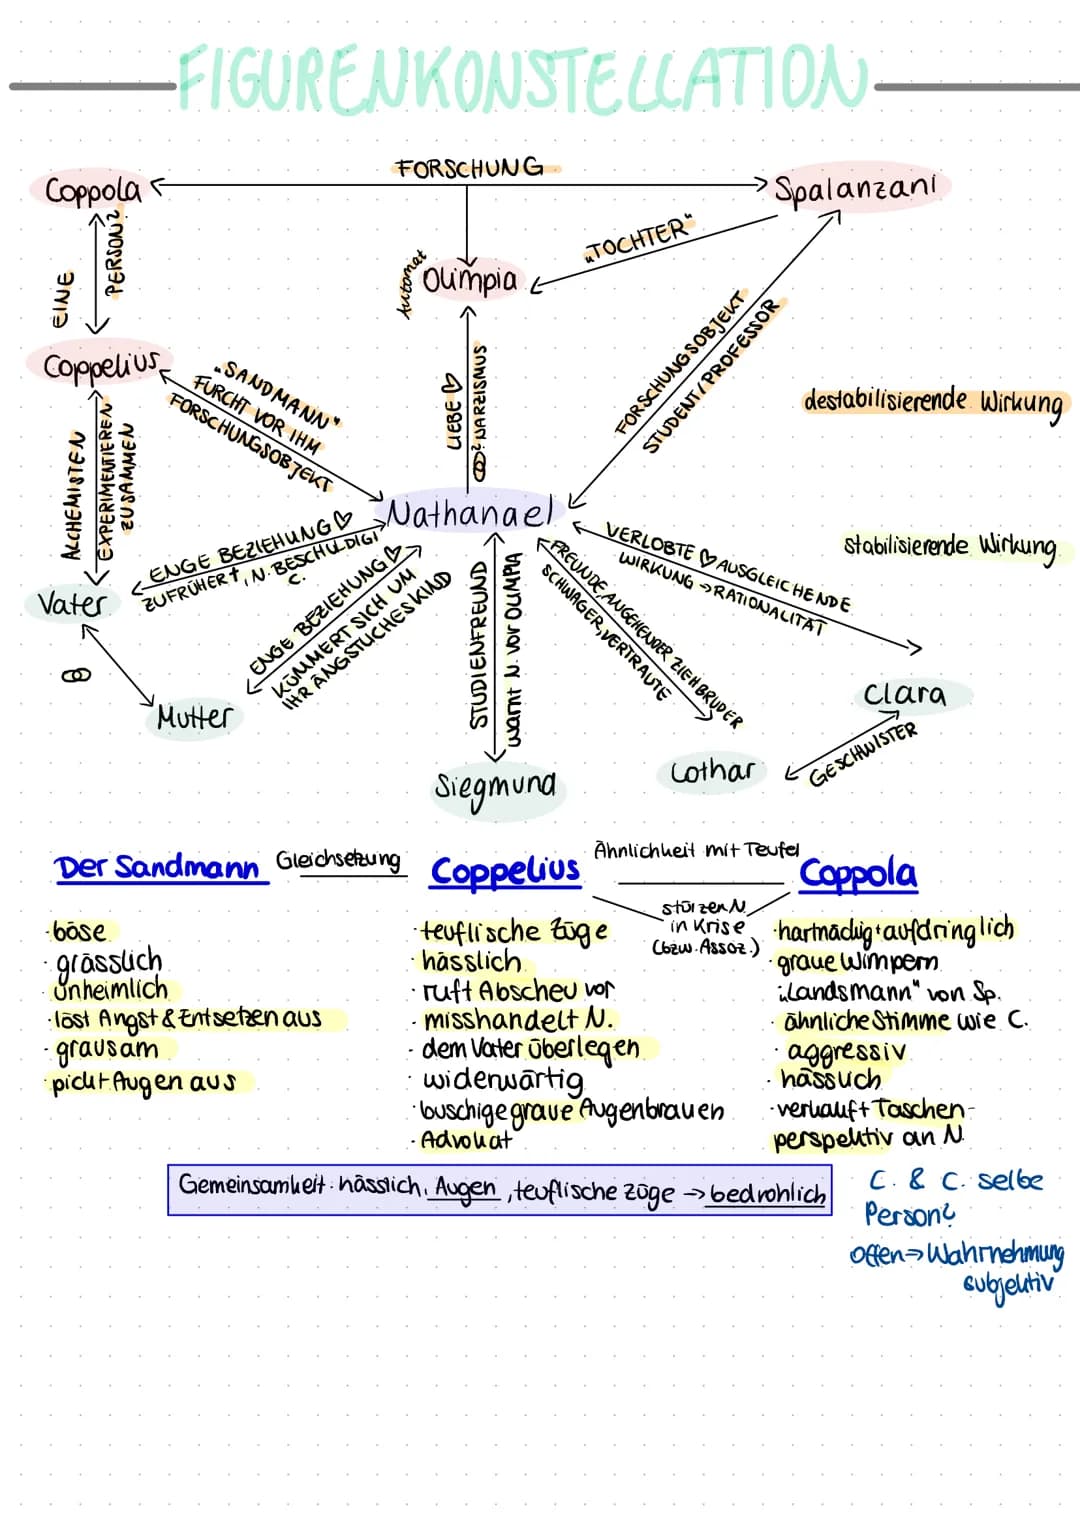 FIGURENKONSTELLATION
FORSCHUNG
Coppola
Spalanzani
"TOCHTER"
EINE
PERSON?
Automat
Olimpia
Coppelius
"SANDMANN"
FURCHT VOR IHM
FORSCHUNGSOBJEKT
LIEBE
? NARZISMUS
FORSCHUNGSOBJEKT
STUDENT/PROFESSOR
destabilisierende Wirkung
ALCHEMISTEN
EXPERIMENTIEREN
ZUSAMMEN
Nathanael
stabilisierende Wirkung
ENGE BEZIEHUNG ♡
ZU FRÜHER †, N. BESCHULDIGT
C.
VERLOBTE ♡ AUSGLEICHENDE
WIRKUNG → RATIONALITÄT
Vater
ENGE BEZIEHUNG ♡
KÜMMERT SICH UM
IHR ÄNGSTLICHES KIND
STUDIENFREUND
warnt N. vor OLIMPIA
FREUNDE, ANGEHENDER ZIEHBRUDER
SCHWAGER, VERTRAUTE
Mutter
Clara
GESCHWISTER
Siegmund
Lothar
Der Sandmann Gleichsetzung Coppelius Ähnlichkeit mit Teufel Coppola
stürzen N.
in Krise
(bzw. Assoz.)
· böse
· grässlich
· Unheimlich
· löst Angst & Entsetzen aus
· grausam
· pickt Augen aus
· teuflische Züge
· hässlich
· ruft Abscheu vor
· misshandelt N.
· dem Vater überlegen
· widerwärtig
· buschige graue Augenbrauen
· Advokat
· hartnäckig + aufdringlich
· graue Wimpern
· "Landsmann" von Sp.
· ähnliche Stimme wie C.
· aggressiv
· hässlich
· verkauft Taschen-
perspektiv an N.
Gemeinsamkeit: hässlich, Augen, teuflische züge → bedrohlich
C. & C. selbe
Person?
Offen ⇒ Wahrnehmung
subjektiv